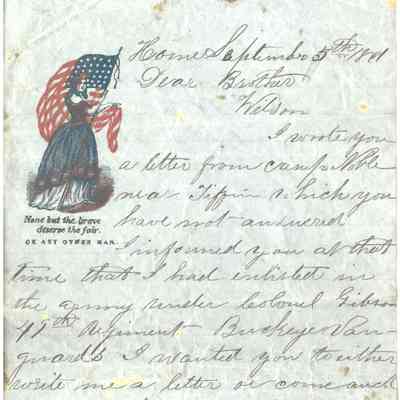 Home September 5th 1861
Dear Brother
Wilson
I wrote you
a letter from camp Noble
near Tiffin which you
have not answered
I informed you at that
time that I had enlisted in
the army under Colonel Gibson
49th Regiment Buckeye Van-
guards I wanted you to either
write me a letter or come and
None but the brave
deserve the fair.
OR ANY OTHER MAN.